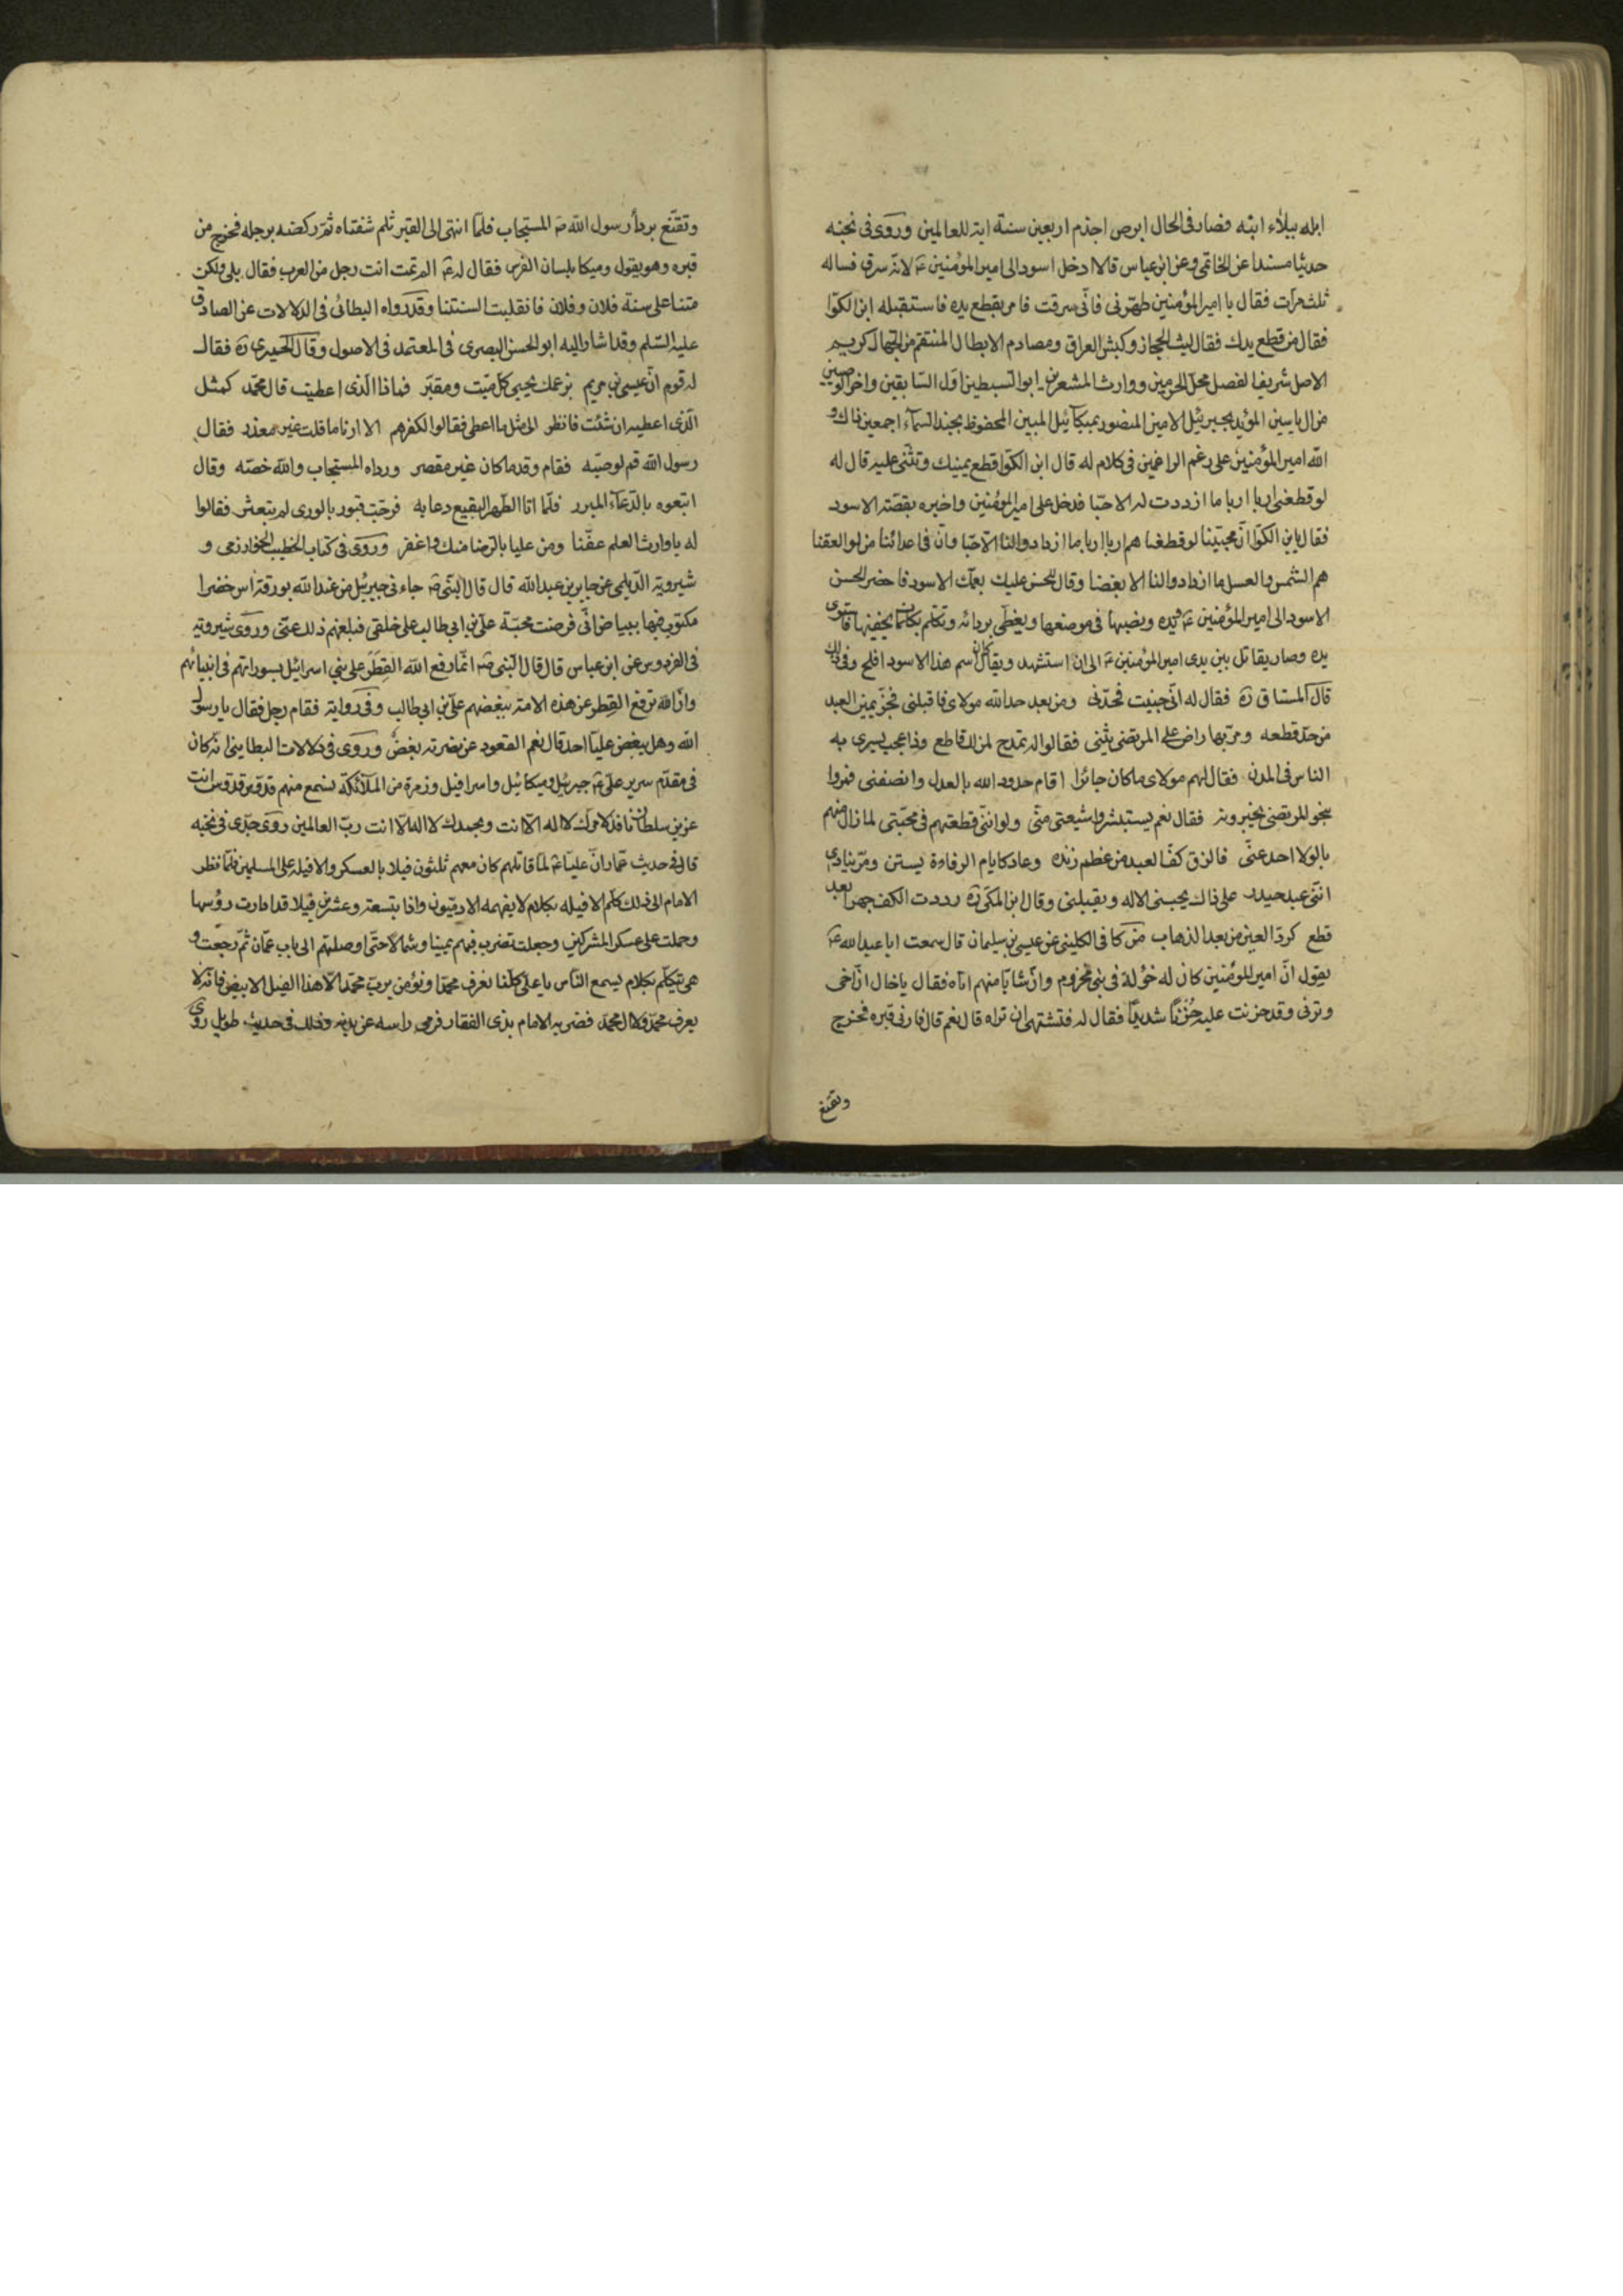 ابله ببلاء ابته فصار فى الحال ابرص اجذم اربعين سنة اية للعالمين وروى فى نخبه
حديثا مسندا عن الخاتمى وعن ابن عباس قالا ادخل اسود الى امير المؤمنين عـ لانه سرق فساله
ثلث مرات فقال يا امير المؤمنين طهرنى فانى سرقت فامر بقطع يده فاستقبله ابن الكوا
فقال من قطع يدك فقال ليث الحجاز وكبش العراق ومصادم الابطال المنتقم من الجهال كريم
الاصل شريف الفصل محل الحرمين ووارث المشعرين ابو السبطين اول السابقين واخر الوصيين
من ال ياسين المؤيد بجبرئيل الامين المنصور بميكائيل المبين المحفوظ بجند السماء اجمعين ذاك و
الله امير المؤمنين على رغم الراغمين فى كلام له قال ابن الكوا قطع يمينك وتثنى عليه قال له
لو قطعنى اربا اربا ما ازددت له الا حبا فدخل على امير المؤمنين واخبره بقصة الاسود
فقال يابن الكوا ان محبينا لو قطعنا هم اربا اربا ما ازدادوا لنا الا حبا وان فى اعدائنا من لو العقنا
هم الشمن والعسل ما ازدادوا لنا الا بغضا وقال للحسن عليك بعمك الاسود فاحضر الحسن
الاسود الى امير المؤمنين عـ يده ونصبها فى موضعها ويغطى بردائه وتكلم بكلمات يخفيها فاستوى
يده وصار يقاتل بين يدى امير المؤمنين عـ الى ان استشهد ويقال كان اسم هذا الاسود افلح وفى ذلك
قال المستاق ره فقال له انى جنيت فحدنى ومن بعد حد الله مولاى فاقبلنى فجز يمين العبد
من حد قطعه ومر بها راض على المرتضى يثنى فقالوا له تمدح لمن لك قاطع وذا عجب يسرى به
الناس فى المدن فقال لهم مولاى ما كان جائرا اقام حدود الله بالعدل وانصفنى فمروا
بنحو المرتضى يخبرونه فقال نعم يستبشروا شيعتى منى ولو اننى قطعتهم فى محبتى لما زال منهم
بالولا احد عنى فالزق كف العبد من عظم زنده وعاد كايام الرفادة يستن ومر ينادى
اننى عبد حيدر على ذاك يحيينى الاله ويقبلنى وقال ابن المكى ره رددت الكف جهرا بعد
قطع كرد العين من بعد الذهاب من كافى الكلينى عن عيسى بن سليمان قال سمعت ابا عبد الله عـ
يقول ان امير المؤمنين كان له خؤلة فى بنى مخزوم وان شابا منهم اتاه فقال ياخال ان اخى
وترنى وقد حزنت عليه حزنا شديدا فقال له فتشتهى ان تراه قال نعم قال فارنى قبره فخرج
وتقنع
وتقنع برداء رسول الله ص المستجاب فلما انتهى الى القبر تلم شفتاه ثم ركضه برجله فخرج من
قبره وهو يقول وميكا بلسان الفرس فقال له عـ الم تمت انت رجل من العرب فقال بلى ولكن
متنا على سنة فلان وفلان فانقلبت السنتنا وقد رواه البطائنى فى الدلالات عن الصادق
عليه السلم وقد اشار اليه ابو الحسن البصرى فى المعتمد فى الاصول وقال الحميرى ره فقال
له قوم ان عيسى بن مريم بزعمك يحيى كل ميت ومقبر فماذا الذى اعطيت قال محمد كمثل
الذى اعطيه ان شئت فانظر الى مثل ما اعطى فقالوا الكفرهم الا ارنا ما قلت غير معذر فقال
رسول الله قم لوصيه فقام وقدما كان غير مقصر ورداه المستجاب والله خصه وقال
اتبعوه بالدعاء المبرر فلما اتا الطهر البقيع دعا به فرجت قبور بالورى لم تبعثر فقالوا
له ياوارث العلم عفنا ومن علينا بالرضا منك واغفر وروى فى كتاب الخطيب الخوارزمى و
شيروية الديلمى عن جابر بن عبد الله قال قال النبى ص جاءنى جبرئيل من عند الله بورقة اس خضرا
مكتوب فيها ببياض انى فرضت محبة على بن ابى طالب على خلقى فبلغهم ذلك عنى وروى شيروية
فى الفردوس عن ابن عباس قال قال النبى ص انما رفع الله القطر على بنى اسرائيل بسوء راتهم فى انبيائهم
وان الله ترفع القطر عن هذه الامة ببغضهم على بن ابى طالب وفى رواية فقام رجل فقال يا رسول
الله وهل يبغض عليا احد قال نعم القعود عن نصرته بغض وروى فى دلالات البطاينى انه كان
فى مقدم سرير على عـ جبرئيل وميكائيل واسرافيل وزمرة من الملائكة نسمع منهم قدوس قدوس انت
عزيز سلطان نافذ لامرك لا اله الا انت وبحمدك لا اله الا انت رب العالمين روى جدى فى نخبه
قال فى حديث عمار ان عليا عـ لما قاتلهم كان معهم ثلثون فيلا بالعسكر والافيلة على المسلمين فلما نظر
الامام الى ذلك كلم الافيله بكلام لا يفهمه الادميون واذا بتسعة وعشرين فيلا قد ادارت رؤسها
وحملت على عسكر المشركين وجعلت تضرب فيهم يمينا وشمالا حتى اوصلتهم الى باب عمان ثم رجعت و
هى تتكلم بكلام يسمع الناس يا على كلنا نعرف محمدا ونؤمن برب محمد الا هذا الفيل الابيض فانه لا
يعرف محمد ولا ال محمد فضربه الامام بذى الفقار فرمى راسه عن بدنه وذلك فى حديث طويل روى